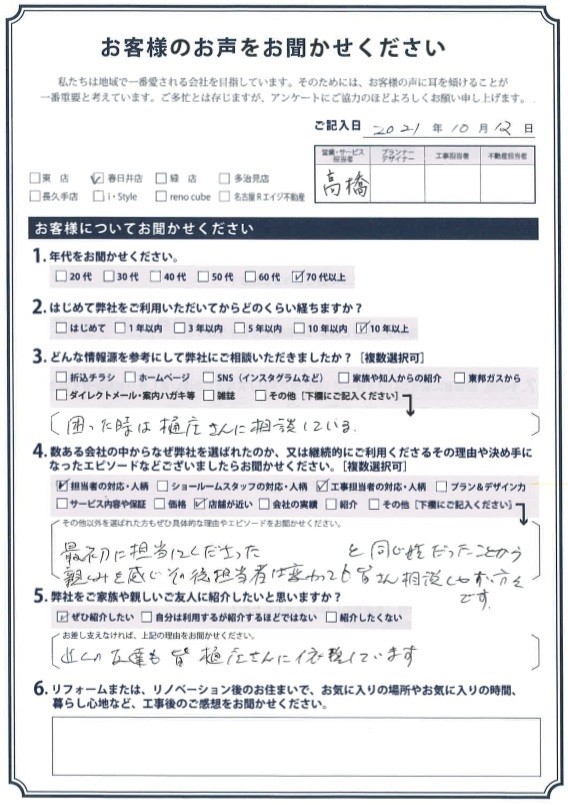 お客様のお声をお聞かせください
私たちは地域で一番愛される会社を目指しています。そのためには、お客様の声に耳を傾けることが
一番重要と考えています。ご多忙とは存じますが、アンケートにご協力のほどよろしくお願い申し上げます。
ご記入日 2021 年 10 月 12 日
営業・サービス担当者 プランナーデザイナー 工事担当者 不動産担当者
高橋
□東 店 ☑春日井店 □緑 店 □多治見店
□長久手店 □i・Style □reno cube □名古屋Rエイジ不動産
お客様についてお聞かせください
1. 年代をお聞かせください。
□20代 □30代 □40代 □50代 □60代 ☑70代以上
2. はじめて弊社をご利用いただいてからどのくらい経ちますか？
□はじめて □1年以内 □3年以内 □5年以内 □10年以内 ☑10年以上
3. どんな情報源を参考にして弊社にご相談いただきましたか？［複数選択可］
□折込チラシ □ホームページ □SNS（インスタグラムなど） □家族や知人からの紹介 □東邦ガスから
□ダイレクトメール・案内ハガキ等 □雑誌 □その他［下欄にご記入ください］
困った時は樋庄さんに相談している。
4. 数ある会社の中からなぜ弊社を選ばれたのか、又は継続的にご利用くださるその理由や決め手に
なったエピソードなどございましたらお聞かせください。［複数選択可］
☑担当者の対応・人柄 □ショールームスタッフの対応・人柄 ☑工事担当者の対応・人柄 □プラン＆デザイン力
□サービス内容や保証 □価格 ☑店舗が近い □会社の実績 □紹介 □その他［下欄にご記入ください］
その他以外を選ばれた方もぜひ具体的な理由やエピソードをお聞かせください。
最初に担当してくださった と同じ姓だったことから
親しみを感じその後担当者は変わっても皆さん相談しやすい方々
です。
5. 弊社をご家族や親しいご友人に紹介したいと思いますか？
☑ぜひ紹介したい □自分は利用するが紹介するほどではない □紹介したくない
お差し支えなければ、上記の理由をお聞かせください。
近くの友達も皆樋庄さんに依頼しています
6. リフォームまたは、リノベーション後のお住まいで、お気に入りの場所やお気に入りの時間、
暮らし心地など、工事後のご感想をお聞かせください。